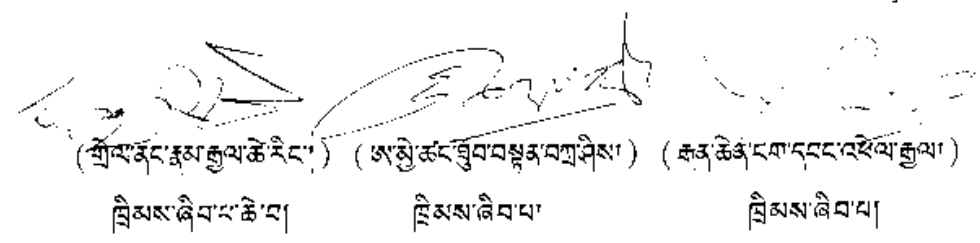 (གྲོལ་ནང་རྣམ་རྒྱལ་ཚེ་རིང་།) (ཨ་མྱེ་ཚང་གྲུབ་བསྟན་བཀྲ་ཤིས།) (རྒན་ཆེན་ངག་དབང་འཕེལ་རྒྱལ།)
ཁྲིམས་ཞིབ་པ་ཆེ་བ། ཁྲིམས་ཞིབ་པ་ ཁྲིམས་ཞིབ་པ།